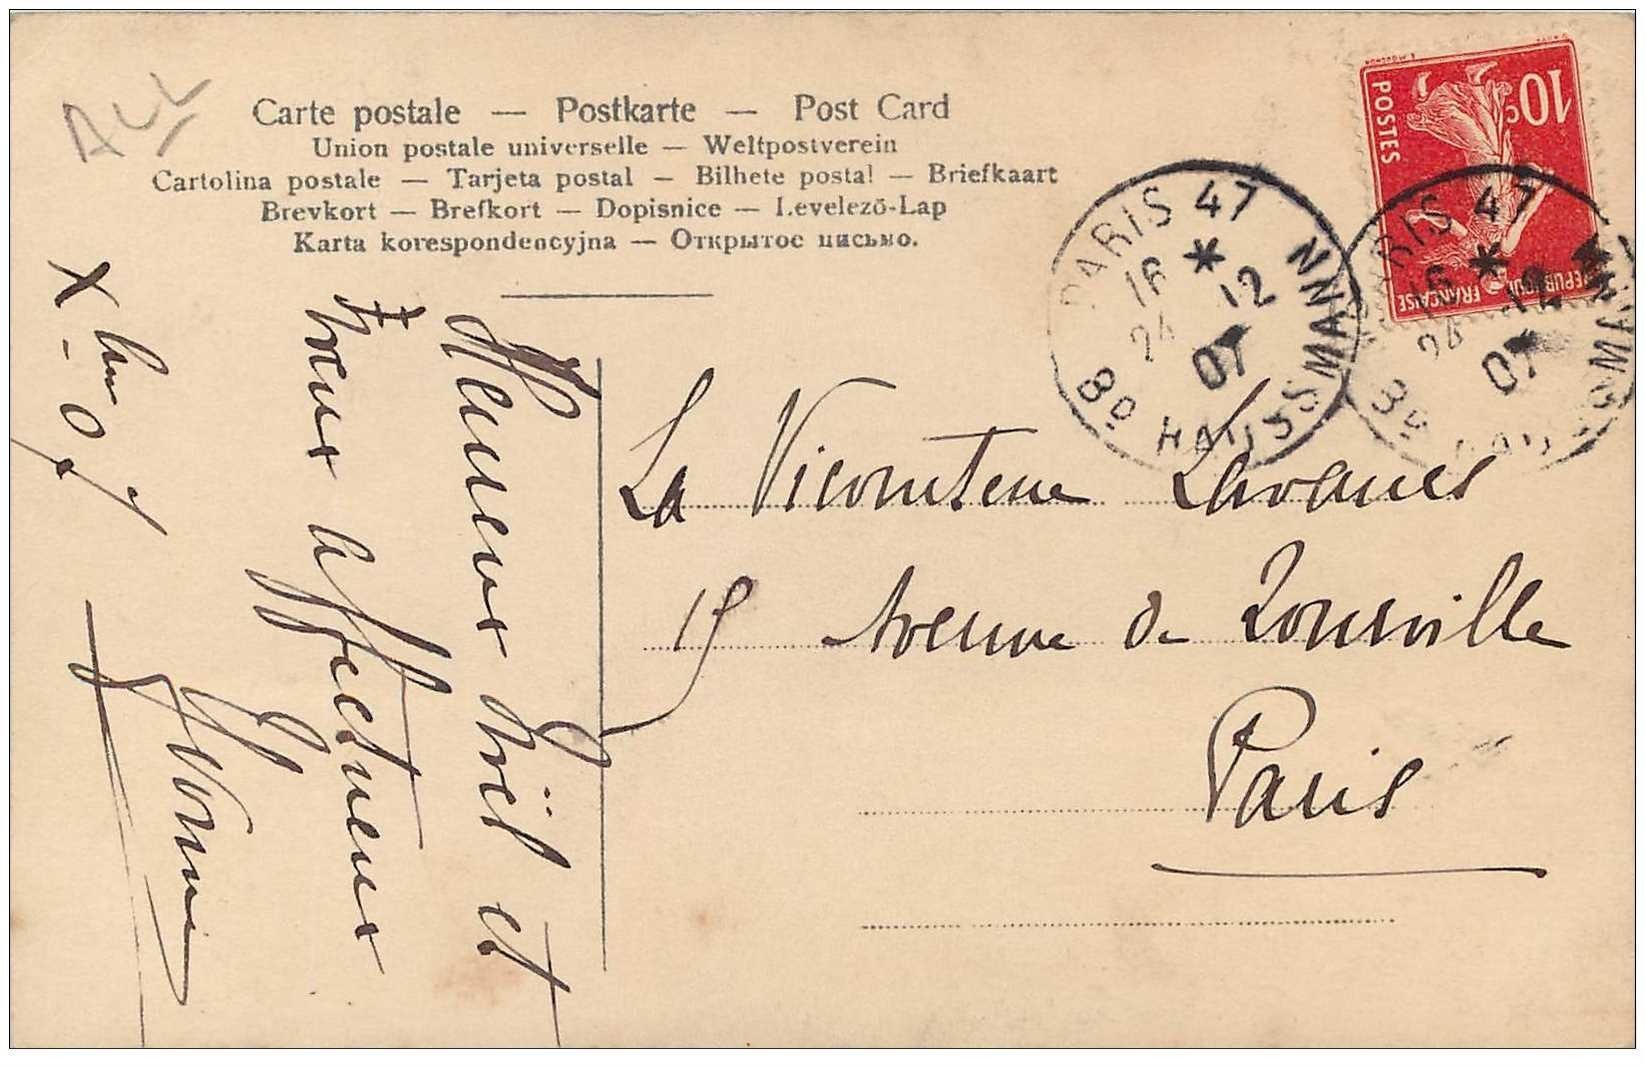 ALL
Carte postale — Postkarte — Post Card
Union postale universelle — Weltpostverein
Cartolina postale — Tarjeta postal — Bilhete postal — Briefkaart
Brevkort — Brefkort — Dopisnice — Levelező-Lap
Karta korespondencyjna — Открытое письмо.
POSTES
10c
REPUBLIQUE FRANÇAISE
PARIS 47
16 * 12
24 07
Bd HAUSSMANN
PARIS 47
16 * 12
24 07
Bd HAUSSMANN
La Vicomtesse
15 Avenue de Tourville
Paris
Heureux Noël et
Vœux affectueux
Xbre 07